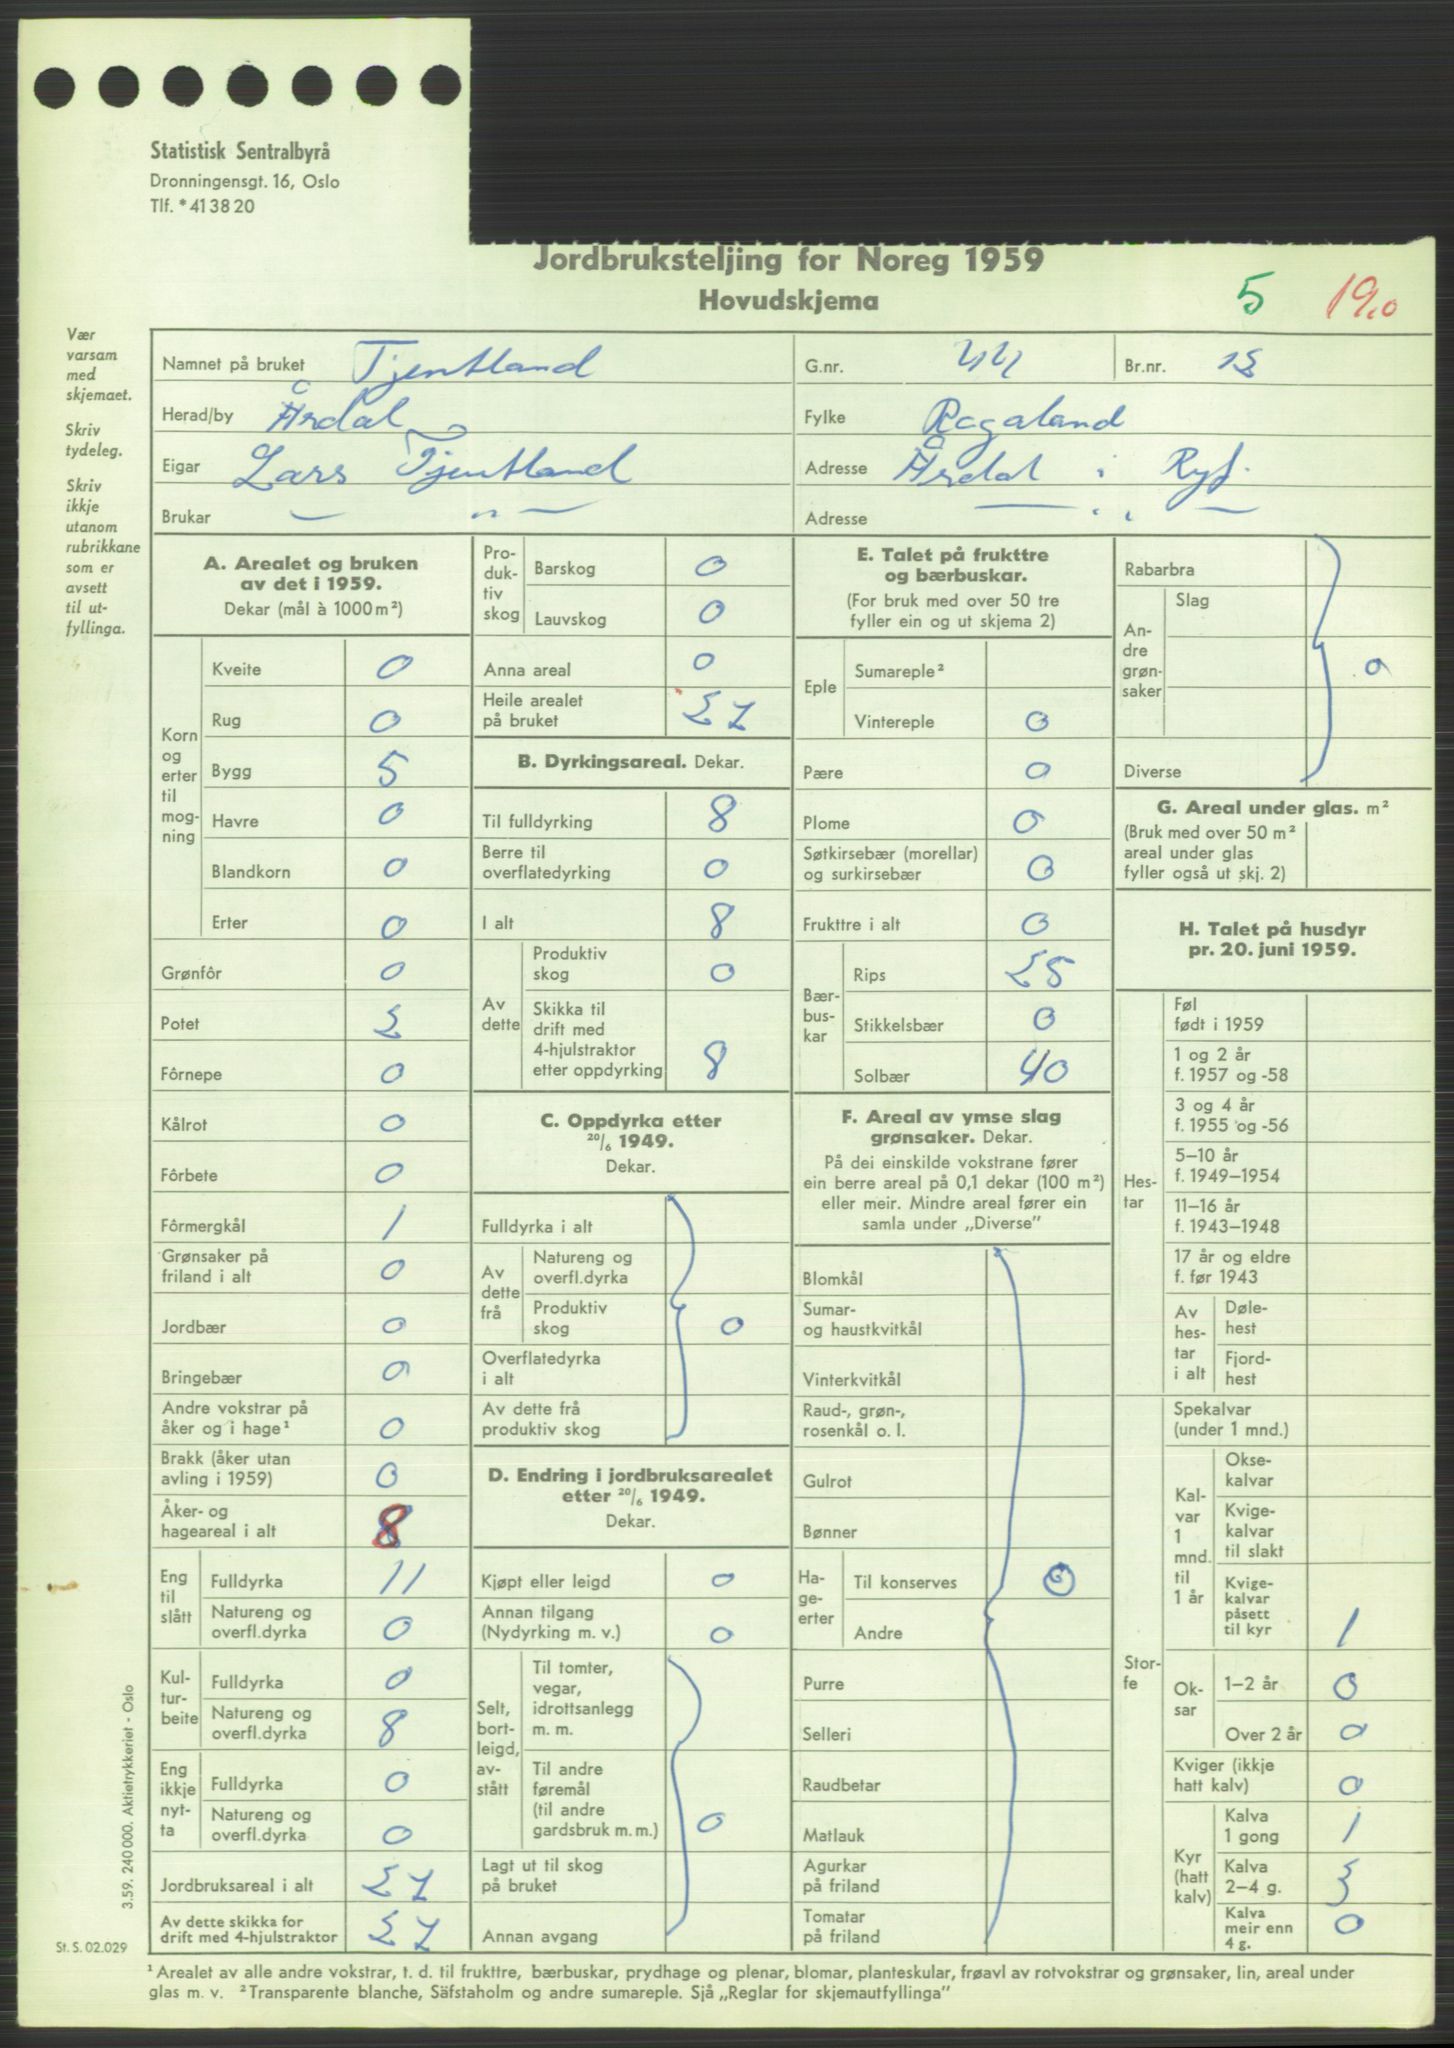 Statistisk Sentralbyrå
Dronningensgt. 16, Oslo
Tlf. *41 38 20
Jordbruksteljing for Noreg 1959
Hovudskjema
5 19,0
Vær
varsam
med
skjemaet.
Skriv
tydeleg.
Skriv
ikkje
utanom
rubrikkane
som er
avsett
til ut-
fyllinga.
Namnet på bruket Tjentland G.nr. 44 Br.nr. 12
Herad/by Årdal Fylke Rogaland
Eigar Lars Tjentland Adresse Årdal i Ryf.
Brukar — " — Adresse — " —
A. Arealet og bruken
av det i 1959.
Dekar (mål à 1000 m²)
Korn
og
erter
til
mog-
ning
Kveite 0
Rug 0
Bygg 5
Havre 0
Blandkorn 0
Erter 0
Grønfôr 0
Potet 2
Fôrnepe 0
Kålrot 0
Fôrbete 0
Fôrmergkål 1
Grønsaker på
friland i alt 0
Jordbær 0
Bringebær 0
Andre vokstrar på
åker og i hage¹ 0
Brakk (åker utan
avling i 1959) 0
Åker- og
hageareal i alt 8
Eng
til
slått
Fulldyrka 11
Natureng og
overfl.dyrka 0
Kul-
tur-
beite
Fulldyrka 0
Natureng og
overfl.dyrka 8
Eng
ikkje
nyt-
ta
Fulldyrka 0
Natureng og
overfl.dyrka 0
Jordbruksareal i alt 27
Av dette skikka for
drift med 4-hjulstraktor 27
Pro-
duk-
tiv
skog
Barskog 0
Lauvskog 0
Anna areal 0
Heile arealet
på bruket 27
B. Dyrkingsareal. Dekar.
Til fulldyrking 8
Berre til
overflatedyrking 0
I alt 8
Av
dette
Produktiv
skog 0
Skikka til
drift med
4-hjulstraktor
etter oppdyrking 8
C. Oppdyrka etter
20/6 1949.
Dekar.
Fulldyrka i alt
Av
dette
frå
Natureng og
overfl.dyrka
Produktiv
skog 0
Overflatedyrka
i alt
Av dette frå
produktiv skog
D. Endring i jordbruksarealet
etter 20/6 1949.
Dekar.
Kjøpt eller leigd 0
Annan tilgang
(Nydyrking m. v.) 0
Selt,
bort-
leigd,
av-
stått
Til tomter,
vegar,
idrottsanlegg
m. m.
Til andre
føremål
(til andre
gardsbruk m. m.) 0
Lagt ut til skog
på bruket
Annan avgang
E. Talet på frukttre
og bærbuskar.
(For bruk med over 50 tre
fyller ein og ut skjema 2)
Eple
Sumareple²
Vintereple 0
Pære 0
Plome 0
Søtkirsebær (morellar)
og surkirsebær 0
Frukttre i alt 0
Bær-
bus-
kar
Rips 25
Stikkelsbær 0
Solbær 40
F. Areal av ymse slag
grønsaker. Dekar.
På dei einskilde vokstrane fører
ein berre areal på 0,1 dekar (100 m²)
eller meir. Mindre areal fører ein
samla under „Diverse”
Blomkål
Sumar-
og haustkvitkål
Vinterkvitkål
Raud-, grøn-,
rosenkål o. l.
Gulrot
Bønner
Ha-
ge-
erter
Til konserves 0
Andre
Purre
Selleri
Raudbetar
Matlauk
Agurkar
på friland
Tomatar
på friland
Rabarbra
An-
dre
grøn-
saker
Slag
0
Diverse
G. Areal under glas. m²
(Bruk med over 50 m²
areal under glas
fyller også ut skj. 2)
H. Talet på husdyr
pr. 20. juni 1959.
Hes-
tar
Føl
født i 1959
1 og 2 år
f. 1957 og -58
3 og 4 år
f. 1955 og -56
5–10 år
f. 1949–1954
11–16 år
f. 1943–1948
17 år og eldre
f. før 1943
Av
hes-
tar
i alt
Døle-
hest
Fjord-
hest
Stor-
fe
Spekalvar
(under 1 mnd.)
Kal-
var
1
mnd.
til
1 år
Okse-
kalvar
Kvige-
kalvar
til slakt
Kvige-
kalvar
påsett
til kyr 1
Ok-
sar
1–2 år 0
Over 2 år 0
Kviger (ikkje
hatt kalv) 0
Kyr
(hatt
kalv)
Kalva
1 gong 1
Kalva
2–4 g. 3
Kalva
meir enn
4 g. 0
3.59. 240 000. Aktietrykkeriet - Oslo
St. S. 02.029
¹ Arealet av alle andre vokstrar, t. d. til frukttre, bærbuskar, prydhage og plenar, blomar, planteskular, frøavl av rotvokstrar og grønsaker, lin, areal under
glas m. v. ² Transparente blanche, Säfstaholm og andre sumareple. Sjå „Reglar for skjemautfyllinga”